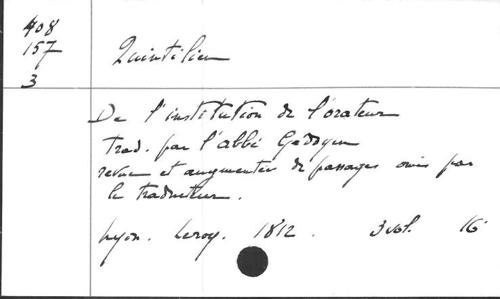 408
157
3
Quintilien
De l'institution de l'orateur
trad. par l'abbé Gedoyn
revue et augmentée de passages omis par
le traducteur.
Lyon. Leroy. 1812. 3 vol. 16